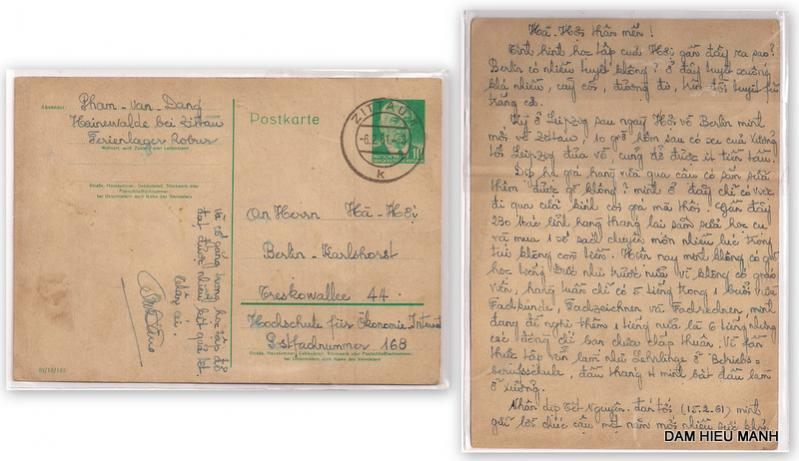 Absender:
Pham-van-Dang
Hainewalde bei Zittau
Ferienlager Robur
Wohnort, auch Zustell- oder Leitpostamt
Straße, Hausnummer, Gebäudeteil, Stockwerk oder Postschließfachnummer;
bei Untermietern auch Name des Vermieters
Postkarte
ZITTAU
-6.2.61
k
10
An Herrn Hà-Hội
Berlin-Karlshorst
Treskowallee 44.
Hochschule für Ökonomie Internat
Postfachnummer 168
Straße, Hausnummer, Gebäudeteil, Stockwerk oder Postschließfachnummer;
bei Untermietern auch Name des Vermieters
và cố gắng trong học tập để
đạt được nhiều kết quả tốt.
Chào
Hà-Hội thân mến!
Tình hình học tập của Hội gần đây ra sao?
Berlin có nhiều tuyết không? Ở đây tuyết xuống
khá nhiều, cây cối, đường đá, trời đổi tuyết phủ
trắng cả.
Hụy ở Leipzig sau ngày Hội về Berlin mình
mới về Zittau, 10 giờ hôm sau có xe của xưởng
tới Leipzig đưa về, cũng đỡ được ít tiền tầu.
Dịp hạ giá hàng vừa qua cậu có sắm sửa
thêm được gì không? mình ở đây chỉ có việc
đi qua cửa kính coi giá mà thôi. Gần đây
230 mác lĩnh hàng tháng lại sắm sửa học cụ
và mua 1 số sách chuyên môn nhiều lúc trong
túi không còn tiền. Hiện nay mình không có giờ
học tiếng Đức như trước nữa vì không có giáo
viên, hàng tuần chỉ có 5 tiếng trong 1 buổi về
Fachkunde, Fachzeichen và Fachrechnen mình
đang đề nghị thêm 1 tiếng nữa là 6 tiếng nhưng
các đồng chí ban chưa chấp thuận. Vẫn
thực tập làm như Lehrlinge ở Betriebs-
berufsschule, đầu tháng 4 mình bắt đầu làm
ở xưởng.
Nhân dịp Tết Nguyên-đán tới (15.2.61) mình
gửi lời chúc cậu một năm mới nhiều sức khỏe
DAM HIEU MANH